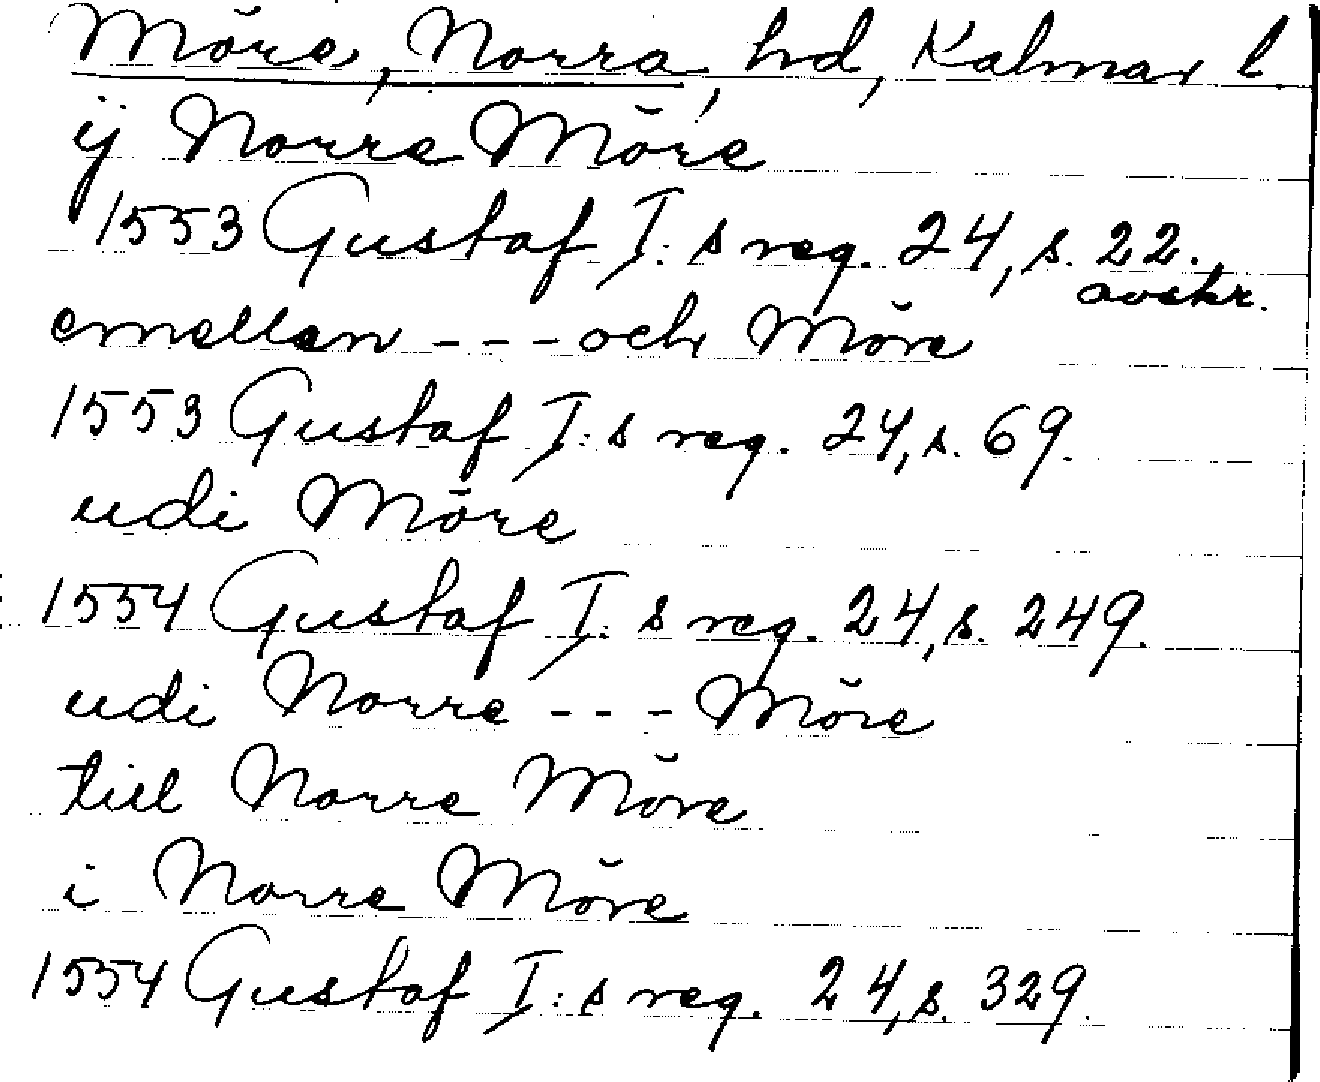 Möre, Norra, hd, Kalmar l.
ÿ Norre Möre
1553 Gustaf I:s reg. 24, s. 22.
avskr.
emellan --- och Möre
1553 Gustaf I:s reg. 24, s. 69.
udi Möre
1554 Gustaf I:s reg. 24, s. 249.
udi Norre --- Möre
till Norre Möre
i Norre Möre
1554 Gustaf I:s reg. 24, s. 329.